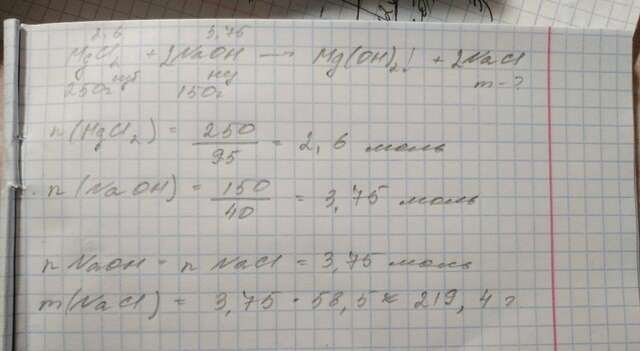 2,6 3,75
MgCl₂ + 2NaOH → Mg(OH)₂↓ + 2NaCl
изб нд
250г 150г m-?
n(MgCl₂) = 250/95 = 2,6 моль
n(NaOH) = 150/40 = 3,75 моль
n NaOH = n NaCl = 3,75 моль
m(NaCl) = 3,75 · 58,5 ≈ 219,4 г